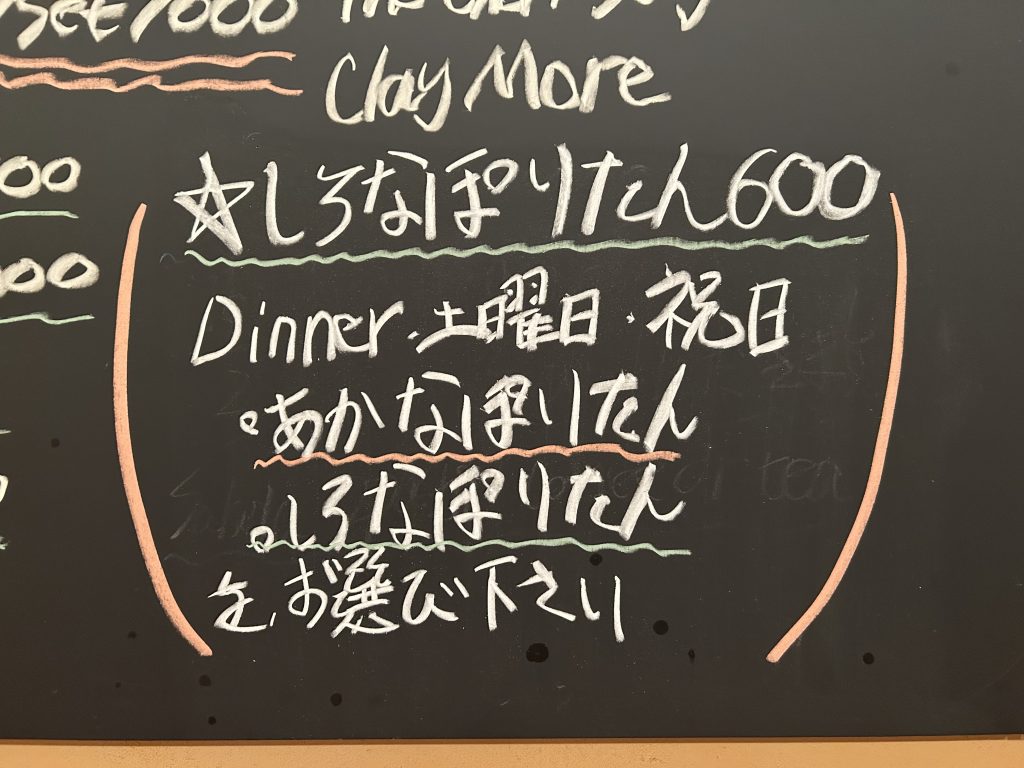 Set 1000
Clay More
00
☆しろなぽりたん600
00
Dinner・土曜日・祝日
。あかなぽりたん
。しろなぽりたん
を、お選び下さい